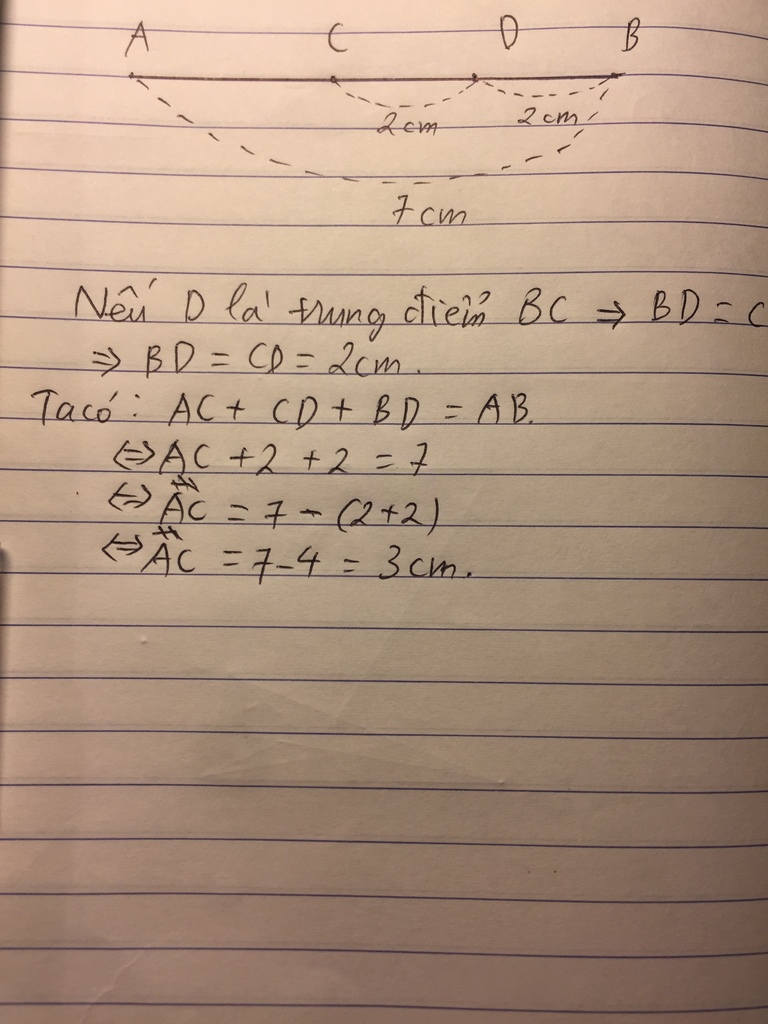 A C D B
2cm 2cm
7cm
Nếu D là trung điểm BC ⇒ BD = C
⇒ BD = CD = 2cm.
Ta có: AC + CD + BD = AB.
⇔ AC + 2 + 2 = 7
⇔ AC = 7 - (2+2)
⇔ AC = 7-4 = 3cm.